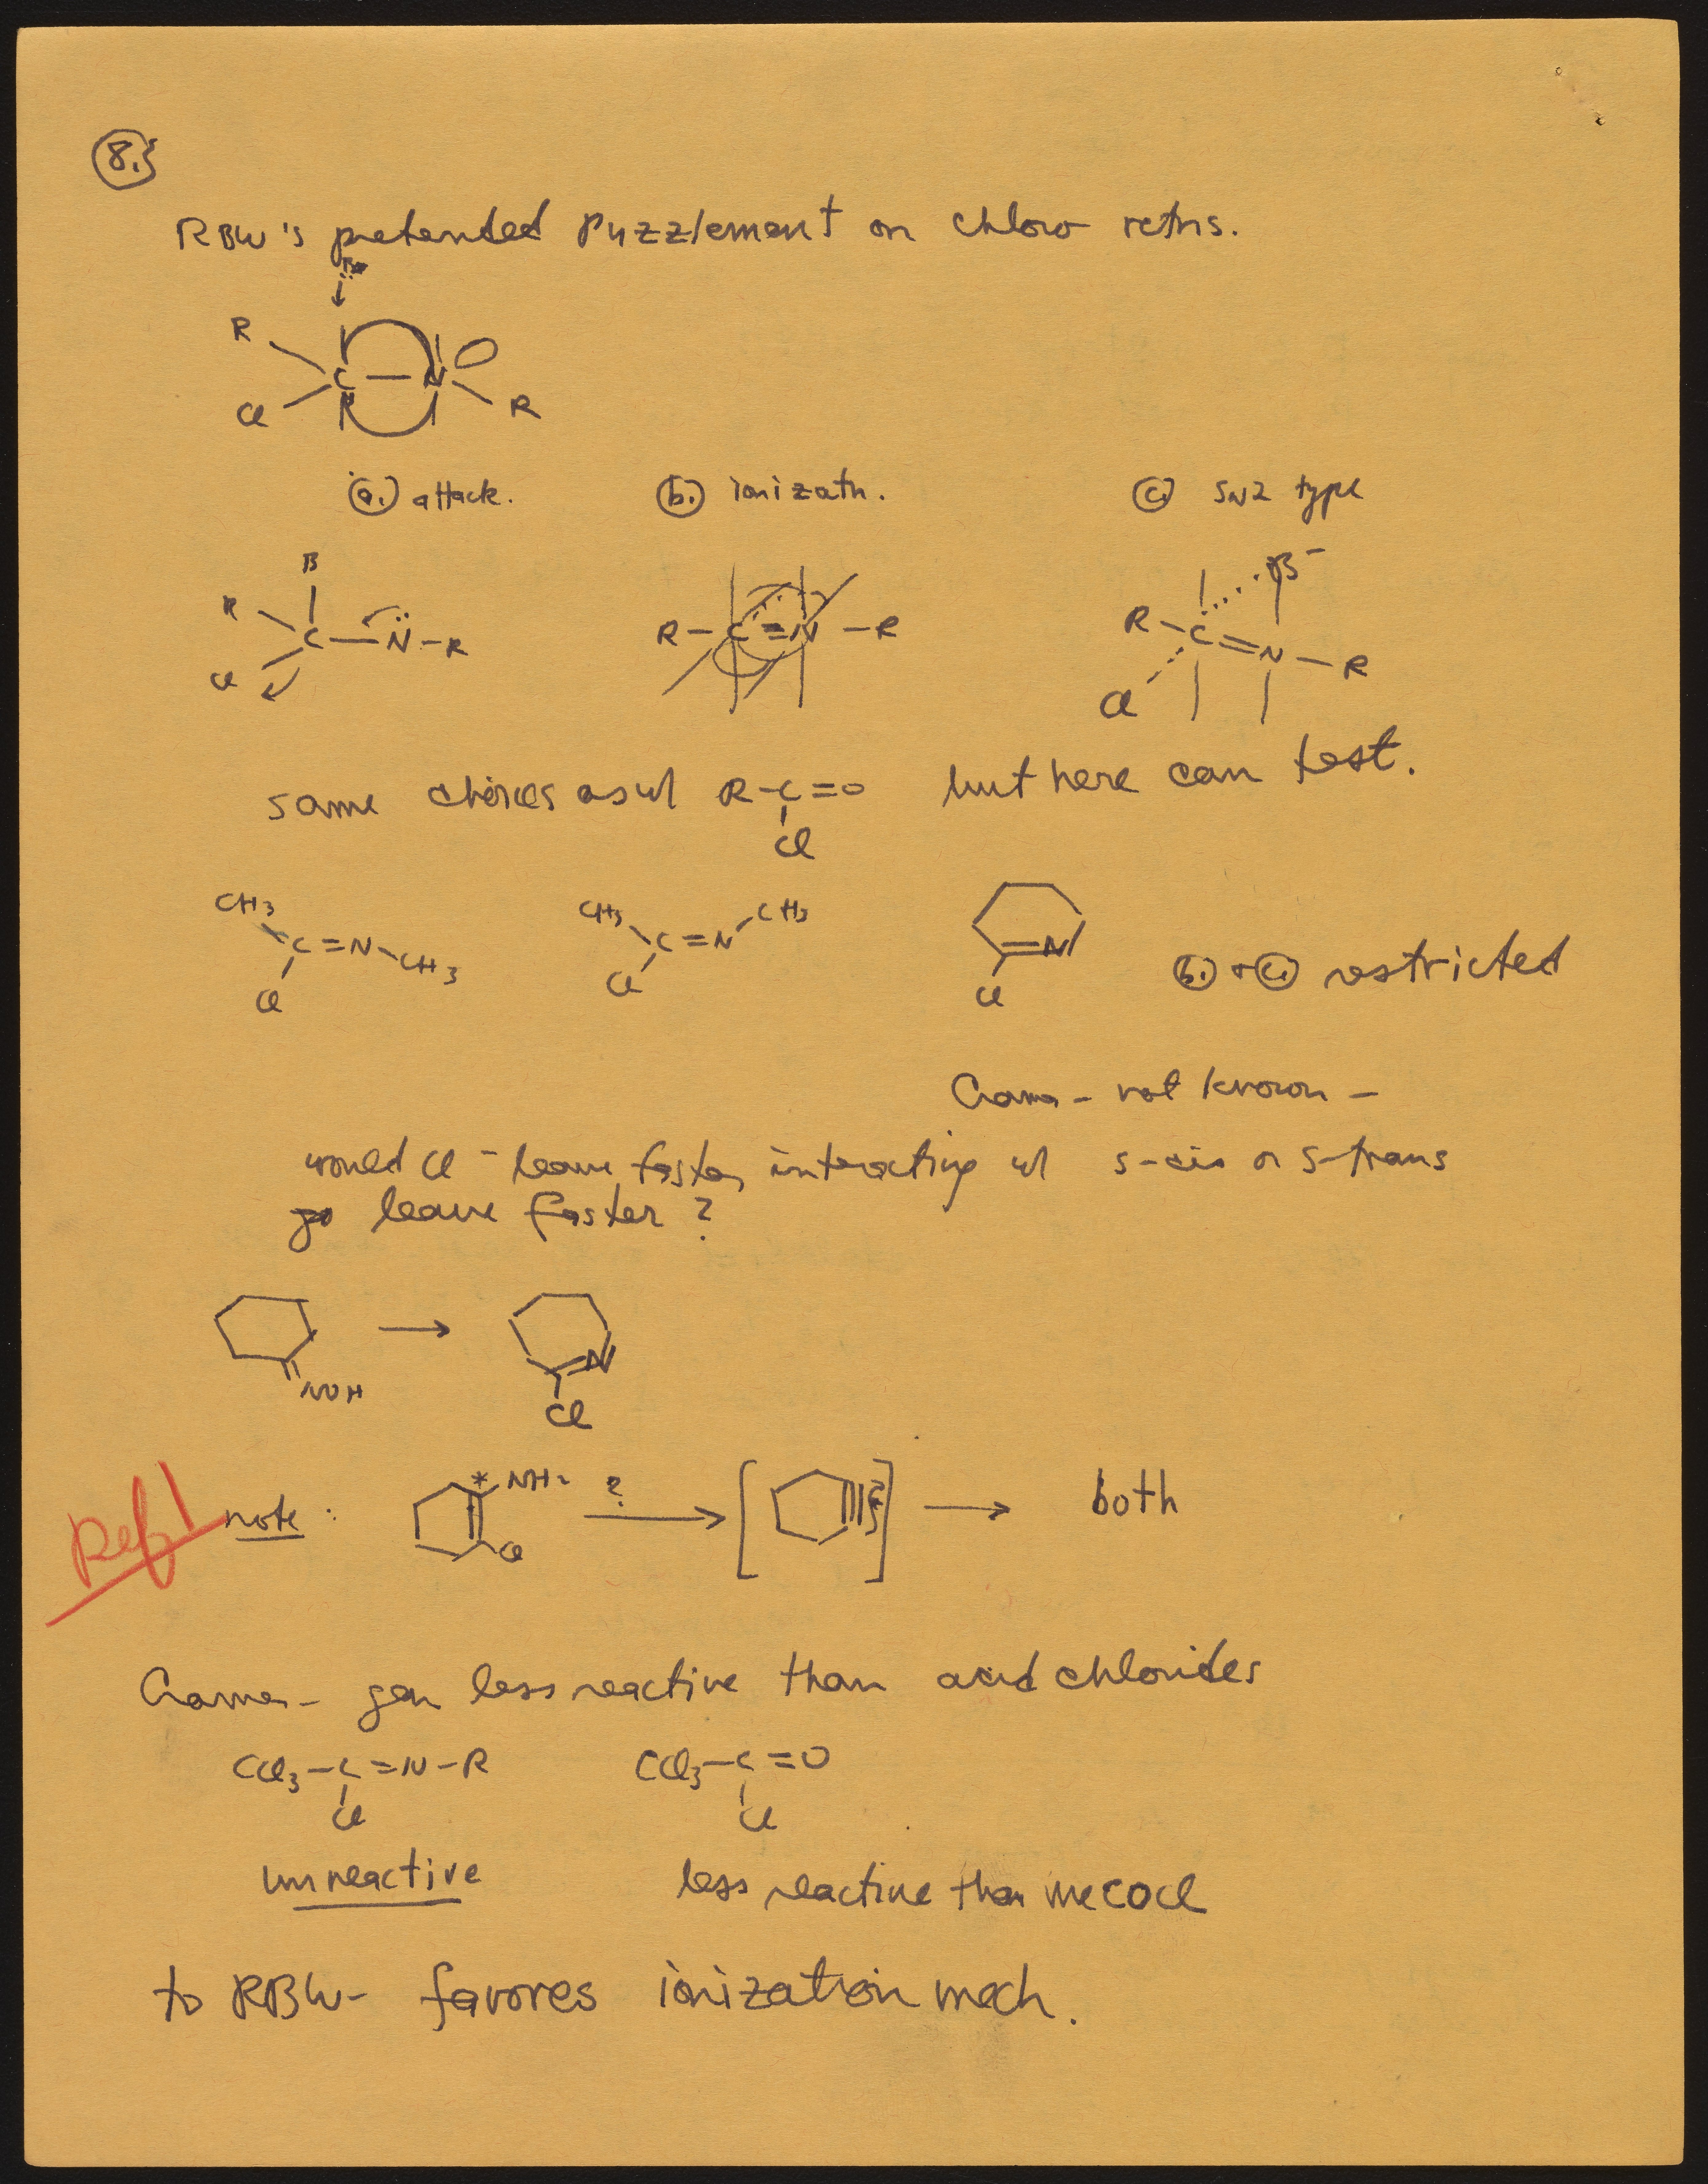 8.}
RBW's pretended puzzlement on chloro rctns.
B
R
C — N
Cl R
(a.) attack. (b.) ionizatn. (c) SN2 type
B B⁻
R R–C≡N–R R–C=N–R
C—N̈–R Cl
Cl
same choices as w/ R–C=O but here can test.
Cl
CH3 CH3 CH3
C=N–CH3 C=N N
Cl Cl Cl (b.) + (c) restricted
Cramer – not known –
would Cl⁻ leave faster interacting w/ s-cis or s-trans
go leave faster ?
→ N
NOH Cl
Ref! note: * NH2 ? → [ ] → both
Cl
Cramer – gen less reactive than acid chlorides
CCl3–C=N–R CCl3–C=O
Cl Cl
unreactive less reactive than MeCOCl
to RBW – favores ionization mech.